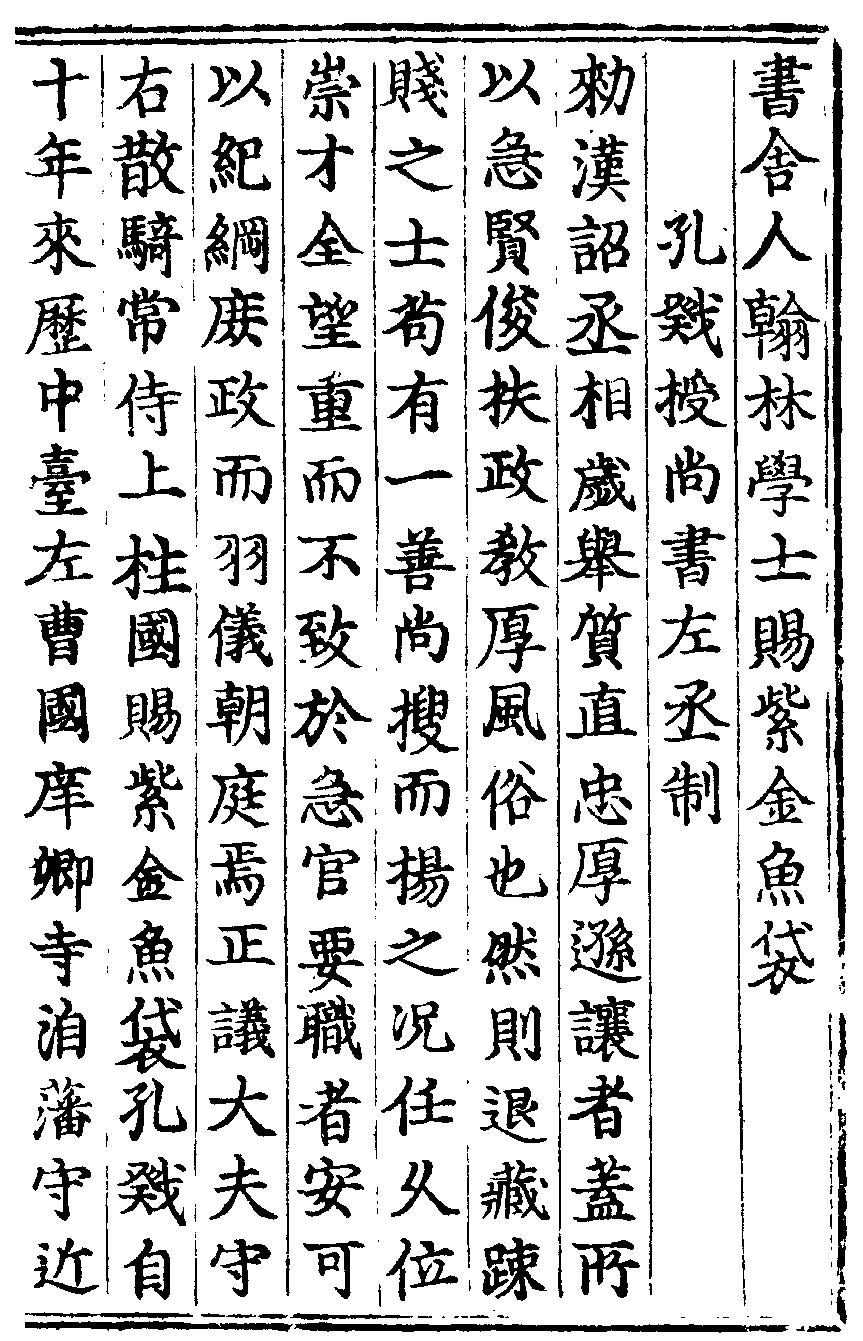 書舎人翰林學士賜紫金魚袋
孔戣授尚書左丞制
勑漢詔丞相歲舉質直忠厚遜讓者蓋所
以急賢俊扶政教厚風俗也然則退藏踈
賤之士苟有一善尚搜而揚之况任乆位
崇才全望重而不致於急官要職者安可
以紀綱庶政而羽儀朝庭焉正議大夫守
右散騎常侍上柱國賜紫金魚袋孔戣自
十年來歷中臺左曹國庠卿寺洎藩守近